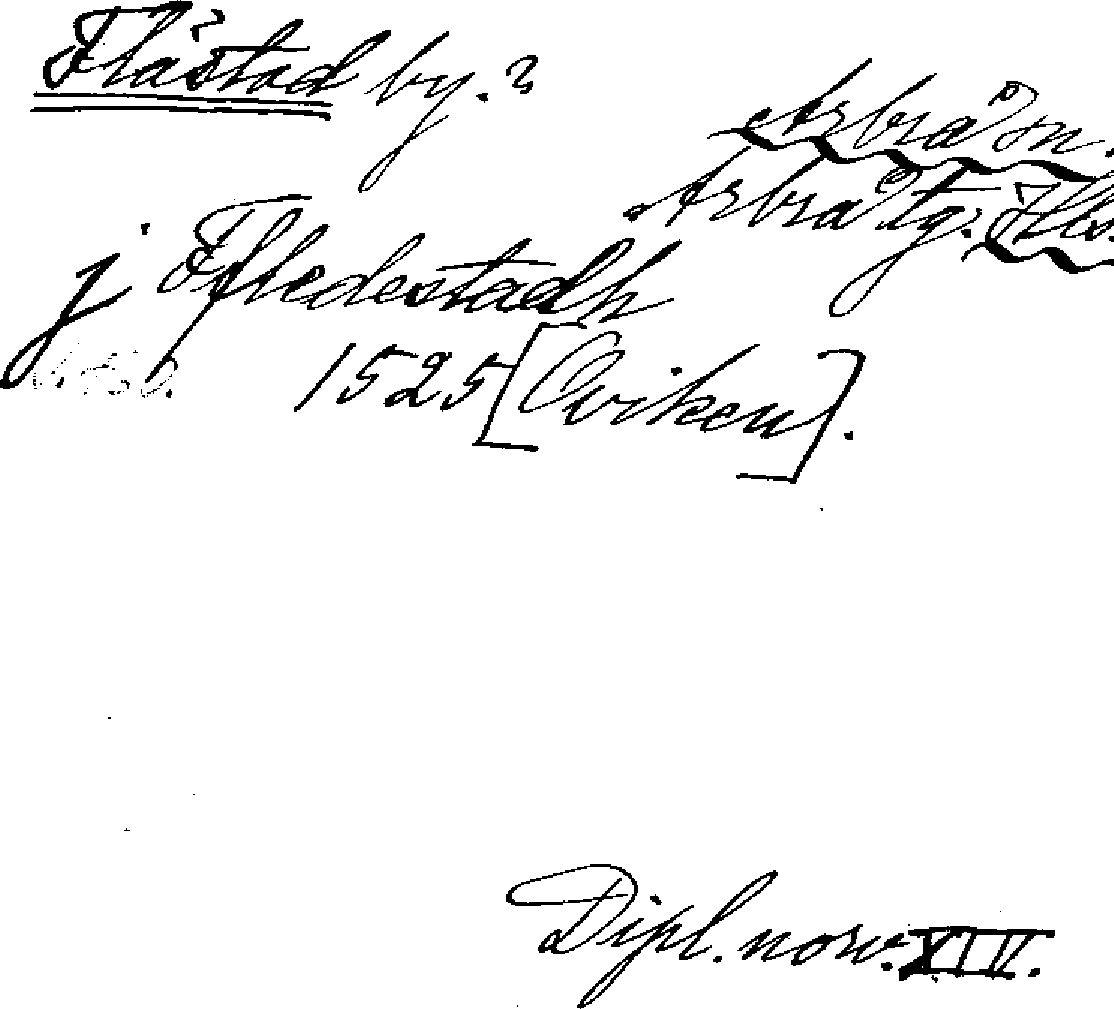 Flästad by.?
Arbrå sn.
Arbrå tg. Hls.
j Ffledestadh
1525 [Oviken].
Dipl. norv. XIV.